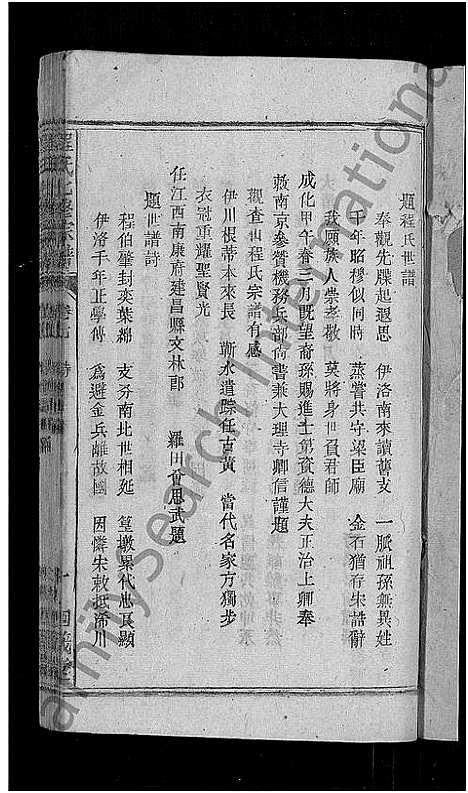 題程氏世譜
奉觀先牒起遐思　伊洛南來讀舊支　一脈祖孫無異姓
千年昭穆似同時　蒸嘗共守梁臣廟　金石猶存宋誥辭
我願族人崇孝敬　莫將身世負君師
成化甲午春三月既望裔孫賜進士第資德大夫正治上卿奉
敕南京參贊機務兵部尚書兼大理寺卿信謹題
觀查山程氏宗譜有感
伊川根蒂本來長　蘄水遺踪在古黃　當代名家方獨步
衣冠重耀聖賢光
任江西南康府建昌縣文林郎　羅田　思武題
題世譜詩
程伯肇封奕葉綿　支分南北世相延　篁墩累代忠良顯
伊洛千年正學傳　為避金兵離故國　因憐朱敕抵浠川
familysearch International